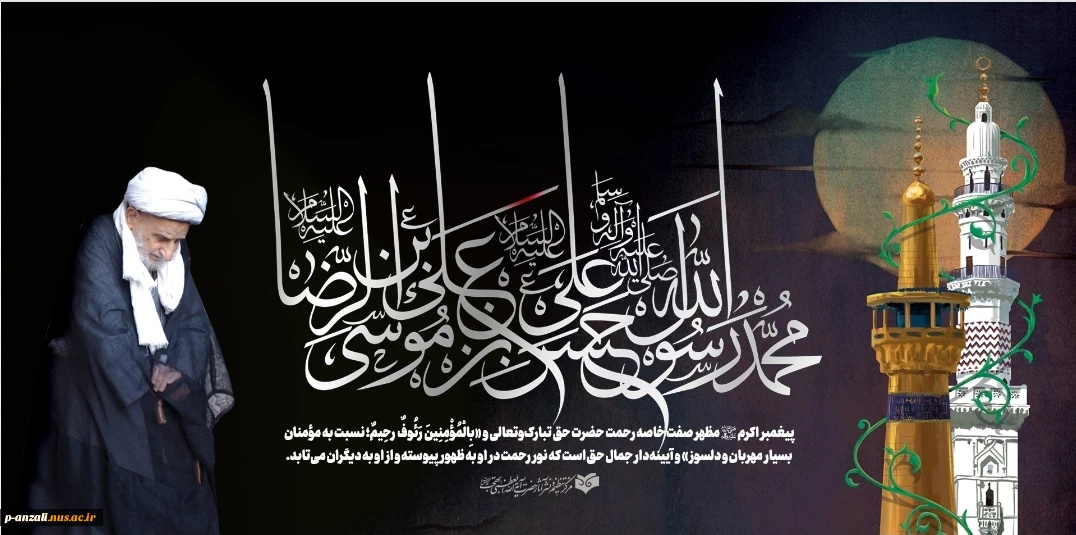 محمد رسول الله صلی الله علیه و آله و سلم
حسن بن علی علیه السلام
علی بن موسی الرضا علیه السلام
پیغمبر اکرم ﷺ مظهر صفت خاصه رحمت حضرت حق تبارک‌وتعالی و «بِالْمُؤْمِنِينَ رَئُوفٌ رَحِيمٌ؛ نسبت به مؤمنان
بسیار مهربان و دلسوز» و آیینه‌دار جمال حق است که نور رحمت در او به ظهور پیوسته و از او به دیگران می‌تابد.
مرکز تنظیم و نشر آثار حضرت آیت‌الله العظمی بهجت
p-anzali.nus.ac.ir